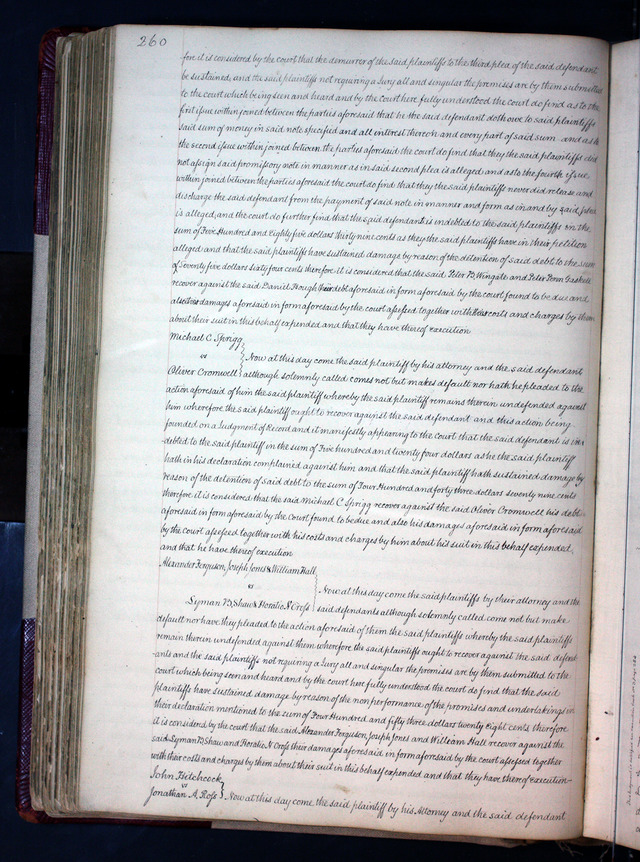 260
fore it is considered by the court that the demurrer of the said plaintiffs to the third plea of the said defendant
be sustained, and the said plaintiffs not requiring a Jury all and singular the premises are by them submitted
to the court which being seen and heard and by the Court here fully understood the court do find as to the
first issue within joined between the parties aforesaid that he the said defendant doth owe to said plaintiffs
said sum of money in said note specified and all interest thereon and every part of said sum and as to
the second issue within joined between the parties aforesaid the court do find that they the said plaintiffs did
not assign said promissory note in manner as in said second plea is alleged and as to the fourth issue
within joined between the parties aforesaid the court do find that they the said plaintiffs never did release and
discharge the said defendant from the payment of said note in manner and form as in and by said plea
is alleged, and the court do further find that the said defendant is indebted to the said plaintiffs in the
sum of Five Hundred and Eighty five dollars thirty nine cents as they the said plaintiffs have in their petition
alleged and that the said plaintiffs have sustained damage by reason of the detention of said debt to the sum
of Seventy five dollars sixty four cents therefore it is considered that the said Peter B, Wingate and Peter Penn Gaskell
recover against the said Daniel Hough their debt aforesaid in form aforesaid by the court found to be due and
also their damages aforesaid in form aforesaid by the court assessed together with their costs and charges by them
about their suit in this behalf expended and that they have thereof execution
Michael C, Sprigg
vs } Now at this day come the said plaintiff by his attorney and the said defendant
Oliver Cromwell although solemnly called comes not but makes default nor hath he pleaded to the
action aforesaid of him the said plaintiff whereby the said plaintiff remains therein undefended against
him wherefore the said plaintiff ought to recover against the said defendant and this action being
founded on a Judgment of Record and it manifestly appearing to the Court that the said defendant is in
debted to the said plaintiff in the sum of Five hundred and twenty four dollars as he the said plaintiff
hath in his declaration complained against him and that the said plaintiff hath sustained damage by
reason of the detention of said debt to the sum of Four Hundred and forty three dollars seventy nine cents
therefore it is considered that the said Michael C Sprigg recover against the said Oliver Cromwell his debt
aforesaid in form aforesaid by the Court found to be due and also his damages aforesaid in form aforesaid
by the court assessed together with his costs and charges by him about his suit in this behalf expended
and that he have thereof execution
Alexander Ferguson, Joseph Jones & William Hall
vs } Now at this day come the said plaintiffs by their attorney and the
Lyman B, Shaw & Horatio N Cross said defendants although solemnly called come not but make
default nor have they pleaded to the action aforesaid of them the said plaintiffs whereby the said plaintiffs
remain therein undefended against them wherefore the said plaintiffs ought to recover against the said defend-
ants and the said plaintiffs not requiring a Jury all and singular the premises are by them submitted to the
court which being seen and heard and by the court here fully understood the court do find that the said
plaintiffs have sustained damage by reason of the non performance of the promises and undertakings in
their declaration mentioned to the sum of Four Hundred and fifty three dollars twenty eight cents therefore
it is considered by the court that the said Alexander Ferguson, Joseph Jones and William Hall recover against the
said Lyman B, Shaw and Horatio N Cross their damages aforesaid in form aforesaid by the court assessed together
with their costs and charges by them about their suit in this behalf expended and that they have thereof execution-
John Hitchcock
vs
Jonathan A, Ross } Now at this day come the said plaintiff by his Attorney and the said defendant